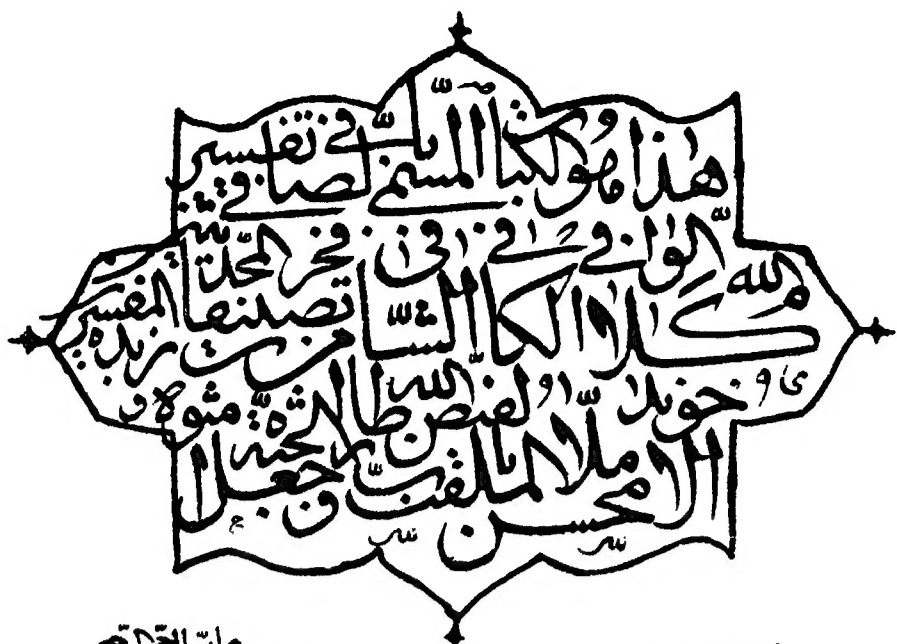 هذا هو الكتاب المسمى بالصافي في تفسير
كلام الله الوافي الكافي الشافي من تصنيفات فخر المحدثين زبدة المفسرين
الاخوند ملا محسن الملقب بالفيض طاب الله ثراه وجعل الجنة مثواه